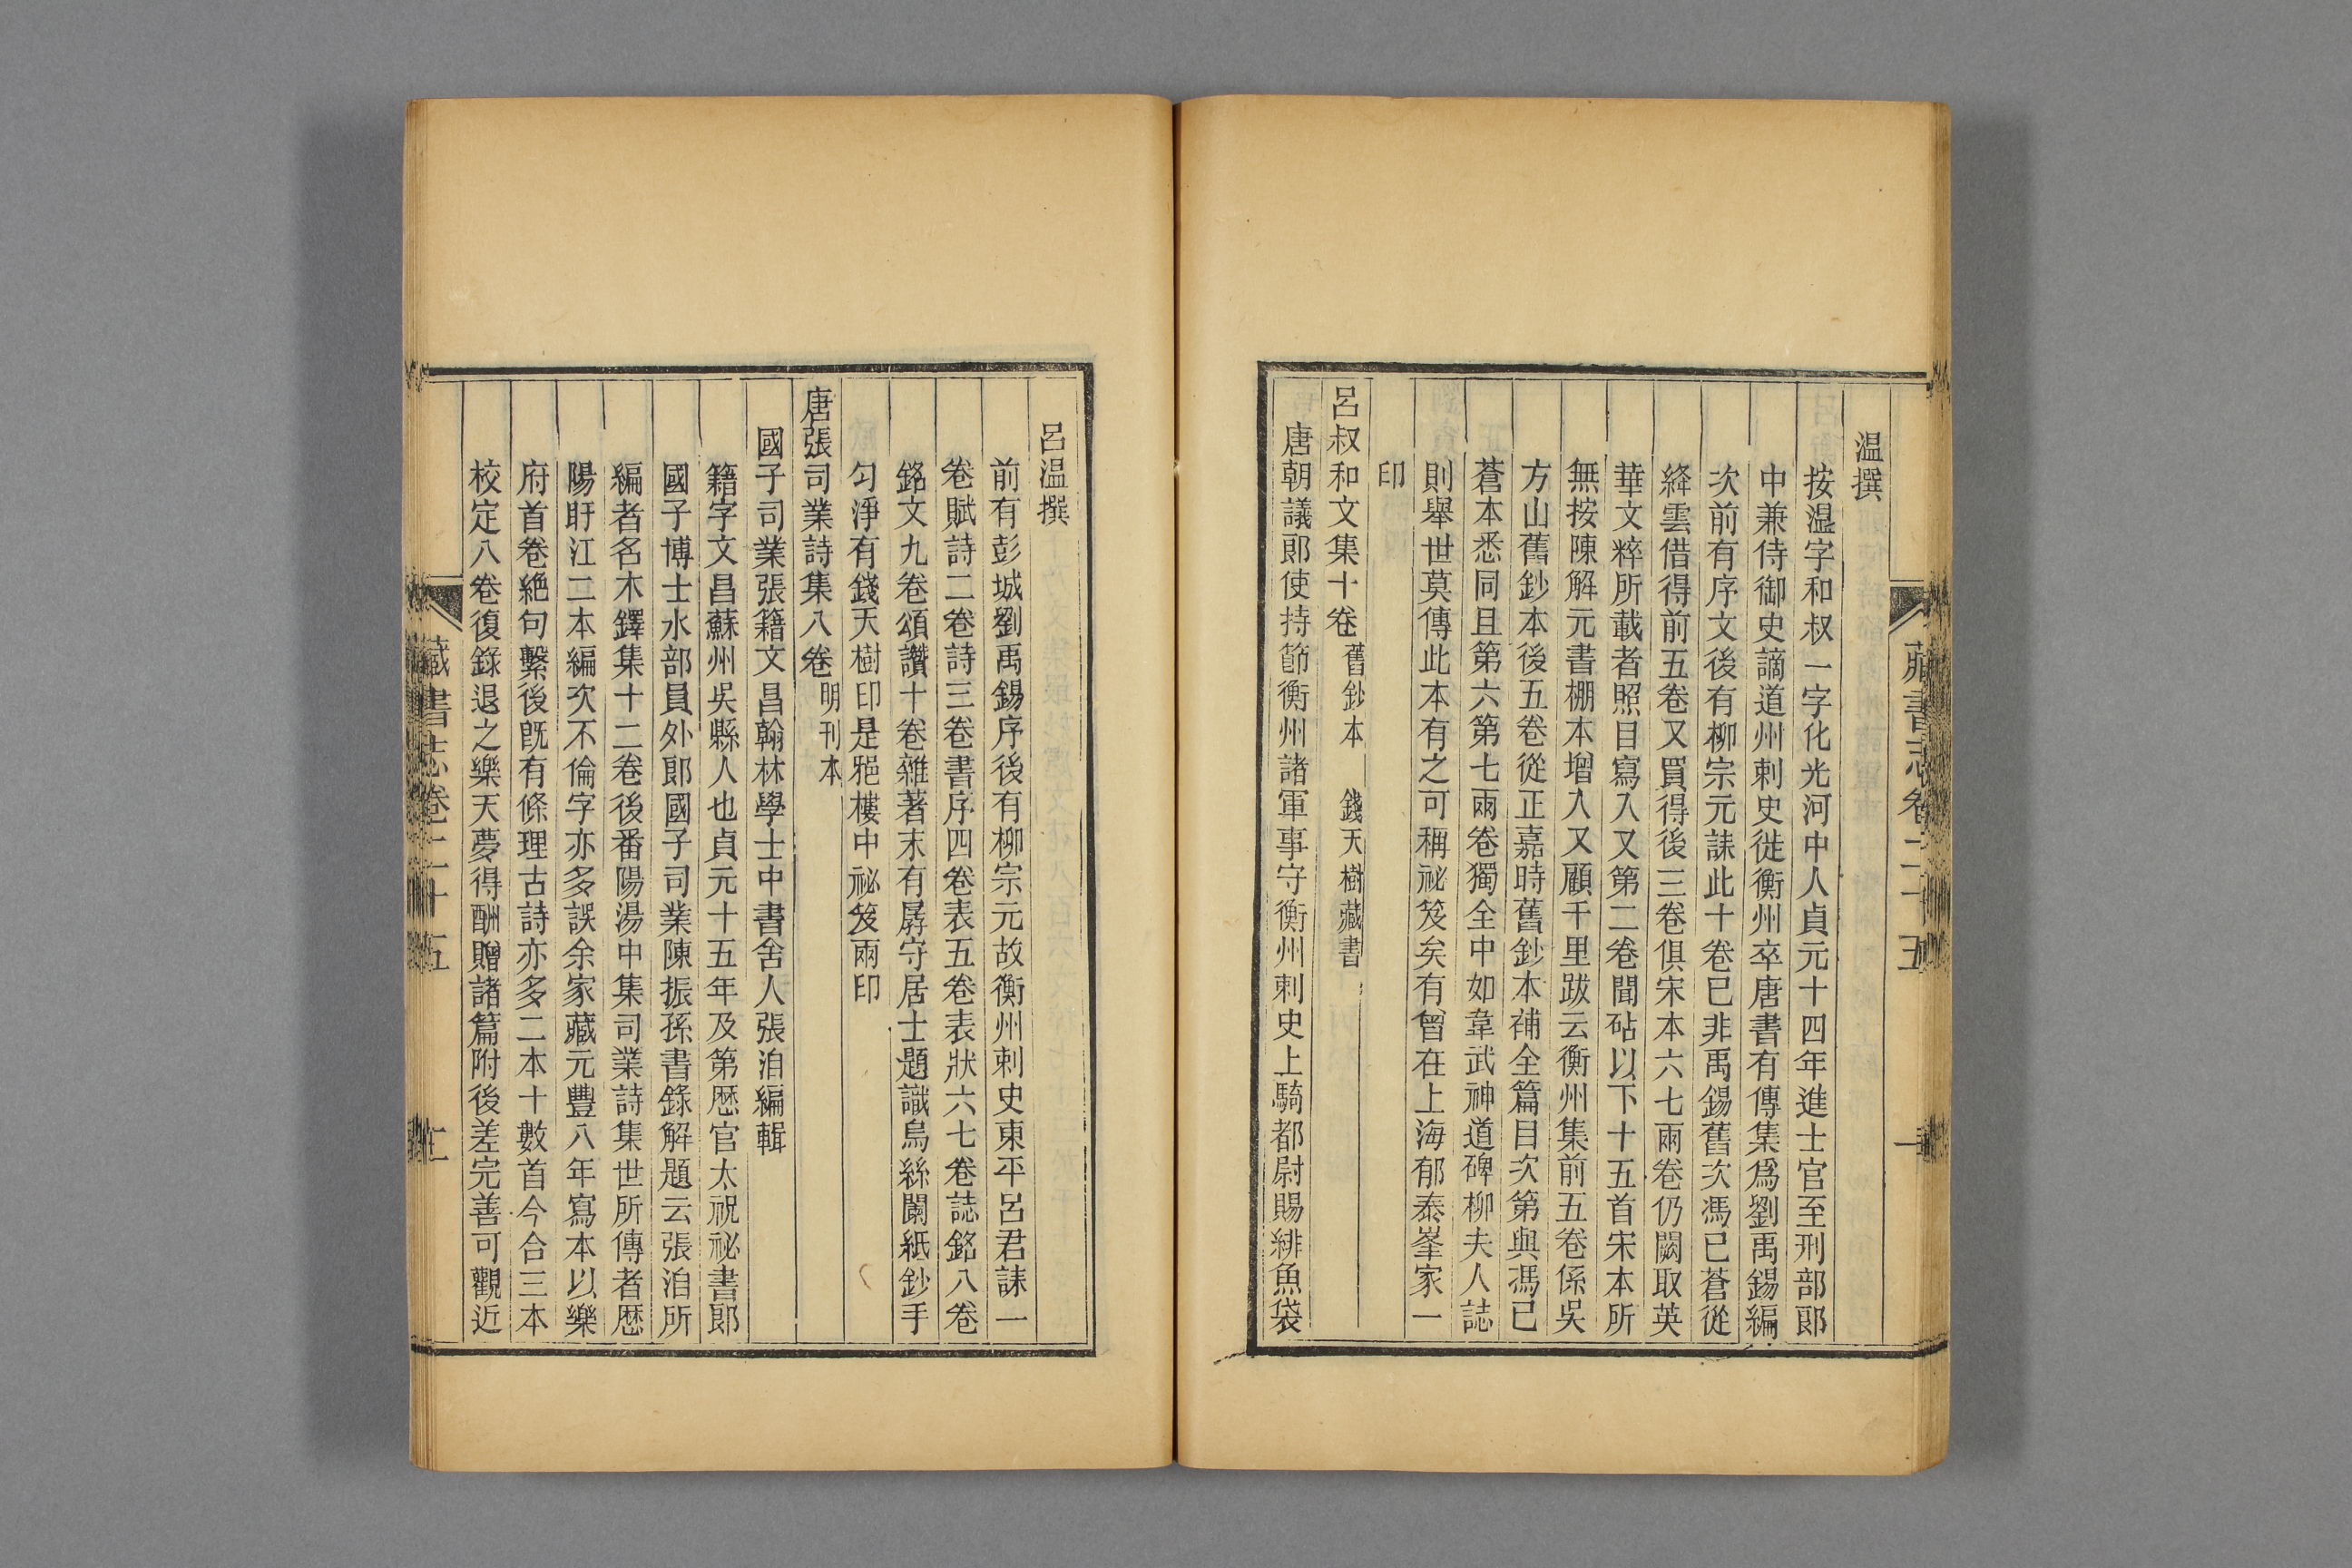 溫撰
按溫字和叔一字化光河中人貞元十四年進士官至刑部郎
中兼侍御史謫道州刺史徙衡州卒唐書有傳集爲劉禹錫編
次前有序文後有柳宗元誄此十卷已非禹錫舊次馮己蒼從
絳雲借得前五卷又買得後三卷俱宋本六七兩卷仍闕取英
華文粹所載者照目寫入又第二卷聞砧以下十五首宋本所
無按陳解元書棚本增入又顧千里跋云衡州集前五卷係吳
方山舊鈔本後五卷從正嘉時舊鈔本補全篇目次第與馮己
蒼本悉同且第六第七兩卷獨全中如韋武神道碑柳夫人誌
則舉世莫傳此本有之可稱祕笈矣有曾在上海郁泰峯家一
印
呂叔和文集十卷 舊鈔本 錢天樹藏書
唐朝議郎使持節衡州諸軍事守衡州刺史上騎都尉賜緋魚袋
藏書志卷二十五 一
呂溫撰
前有彭城劉禹錫序後有柳宗元故衡州刺史東平呂君誄一
卷賦詩二卷詩三卷書序四卷表五卷表狀六七卷誌銘八卷
銘文九卷頌讚十卷雜著末有孱守居士題識烏絲闌紙鈔手
勻淨有錢天樹印是耙樓中祕笈兩印
唐張司業詩集八卷 明刊本
國子司業張籍文昌翰林學士中書舍人張洎編輯
籍字文昌蘇州吳縣人也貞元十五年及第歷官太祝祕書郎
國子博士水部員外郎國子司業陳振孫書錄解題云張洎所
編者名木鐸集十二卷後番陽湯中集司業詩集世所傳者歷
陽盱江二本編次不倫字亦多誤余家藏元豐八年寫本以樂
府首卷絕句繫後旣有條理古詩亦多二本十數首今合三本
校定八卷復錄退之樂天夢得酬贈諸篇附後差完善可觀近
藏書志卷二十五 二